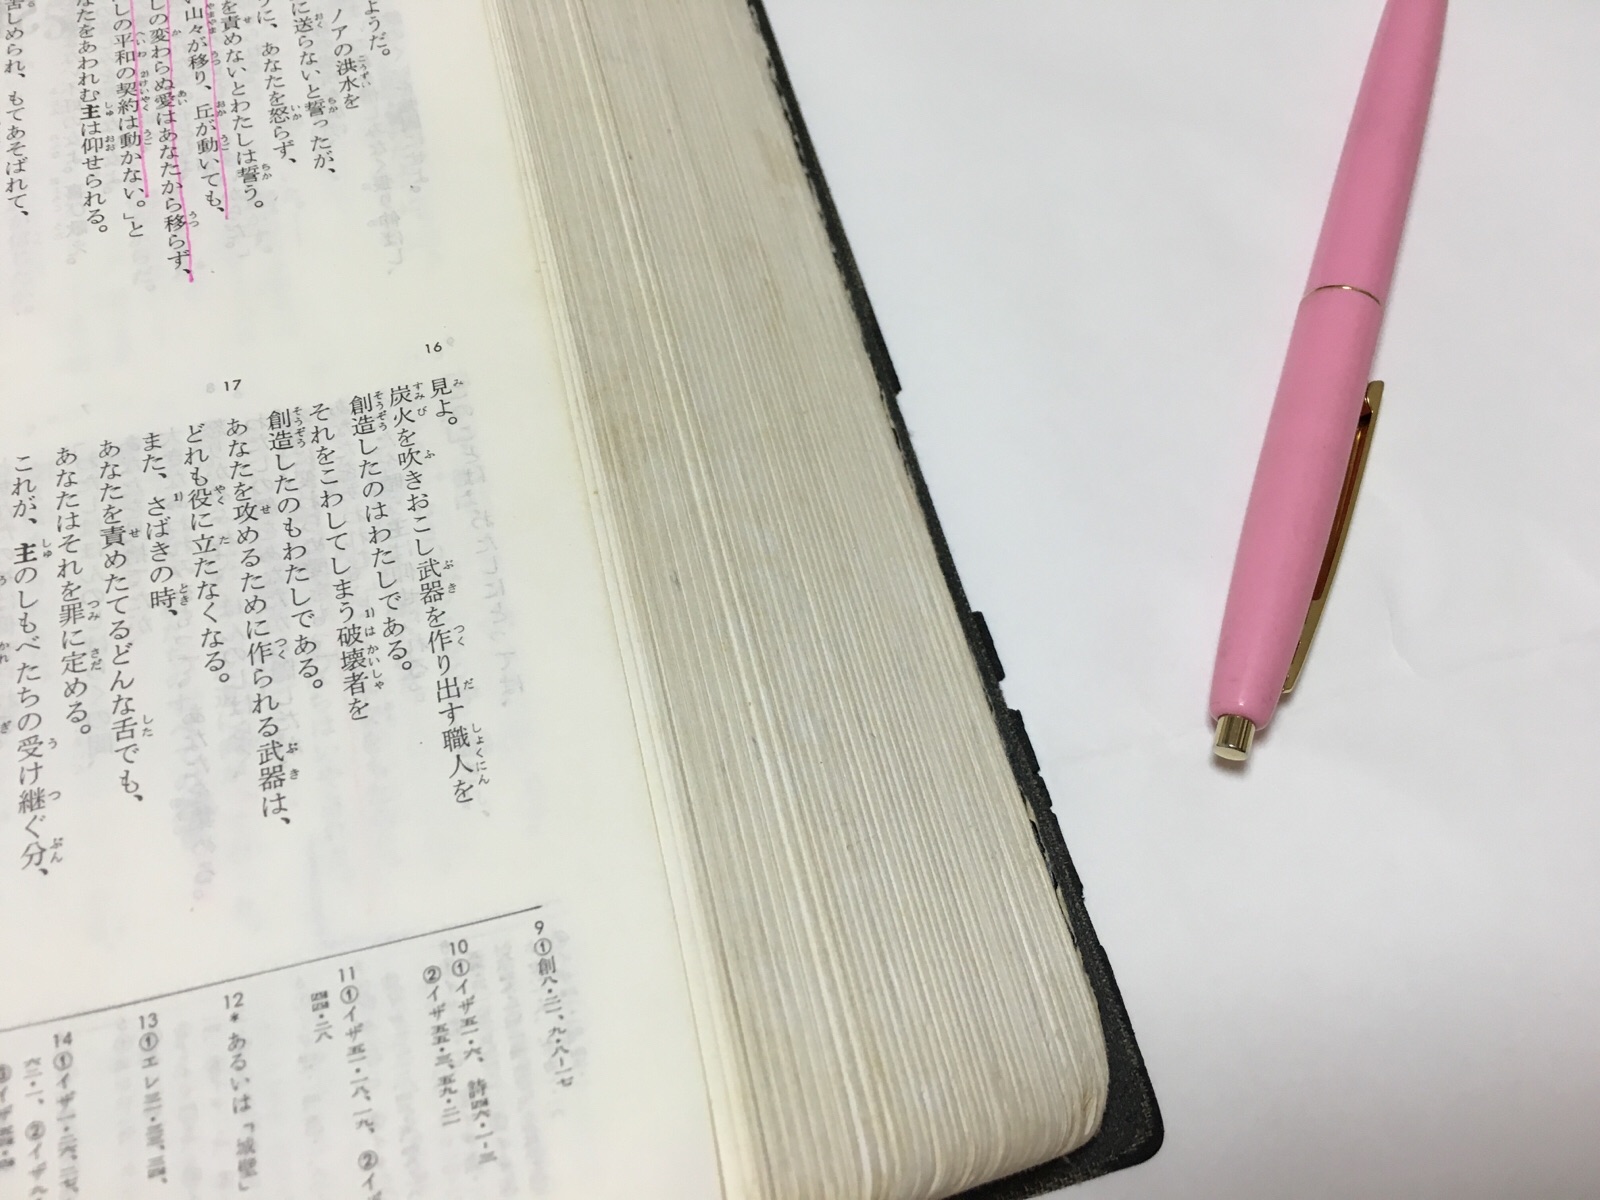 ようだ。
ノアの洪水を
に送らないと誓ったが、
に、あなたを怒らず、
を責めないとわたしは誓う。
山々が移り、丘が動いても、
しの変わらぬ愛はあなたから移らず、
しの平和の契約は動かない。」と
なたをあわれむ主は仰せられる。
苦しめられ、もてあそばれて、
16
見よ。
炭火を吹きおこし武器を作り出す職人を
創造したのはわたしである。
それをこわしてしまう1)破壊者を
創造したのもわたしである。
17
あなたを攻めるために作られる武器は、
どれも役に立たなくなる。
また、1)さばきの時、
あなたを責めたてるどんな舌でも、
あなたはそれを罪に定める。
これが、主のしもべたちの受け継ぐ分、
9①創八・二一、九・八-一七
10①イザ五一・六、詩四六・一-三
②イザ五五・三、五九・二一
11①イザ五一・一八、一九、②イ
12*あるいは「城壁」
13①エレ三一・三三、三四、
14①イザ一・二六、二七、
六二・一、②イザ